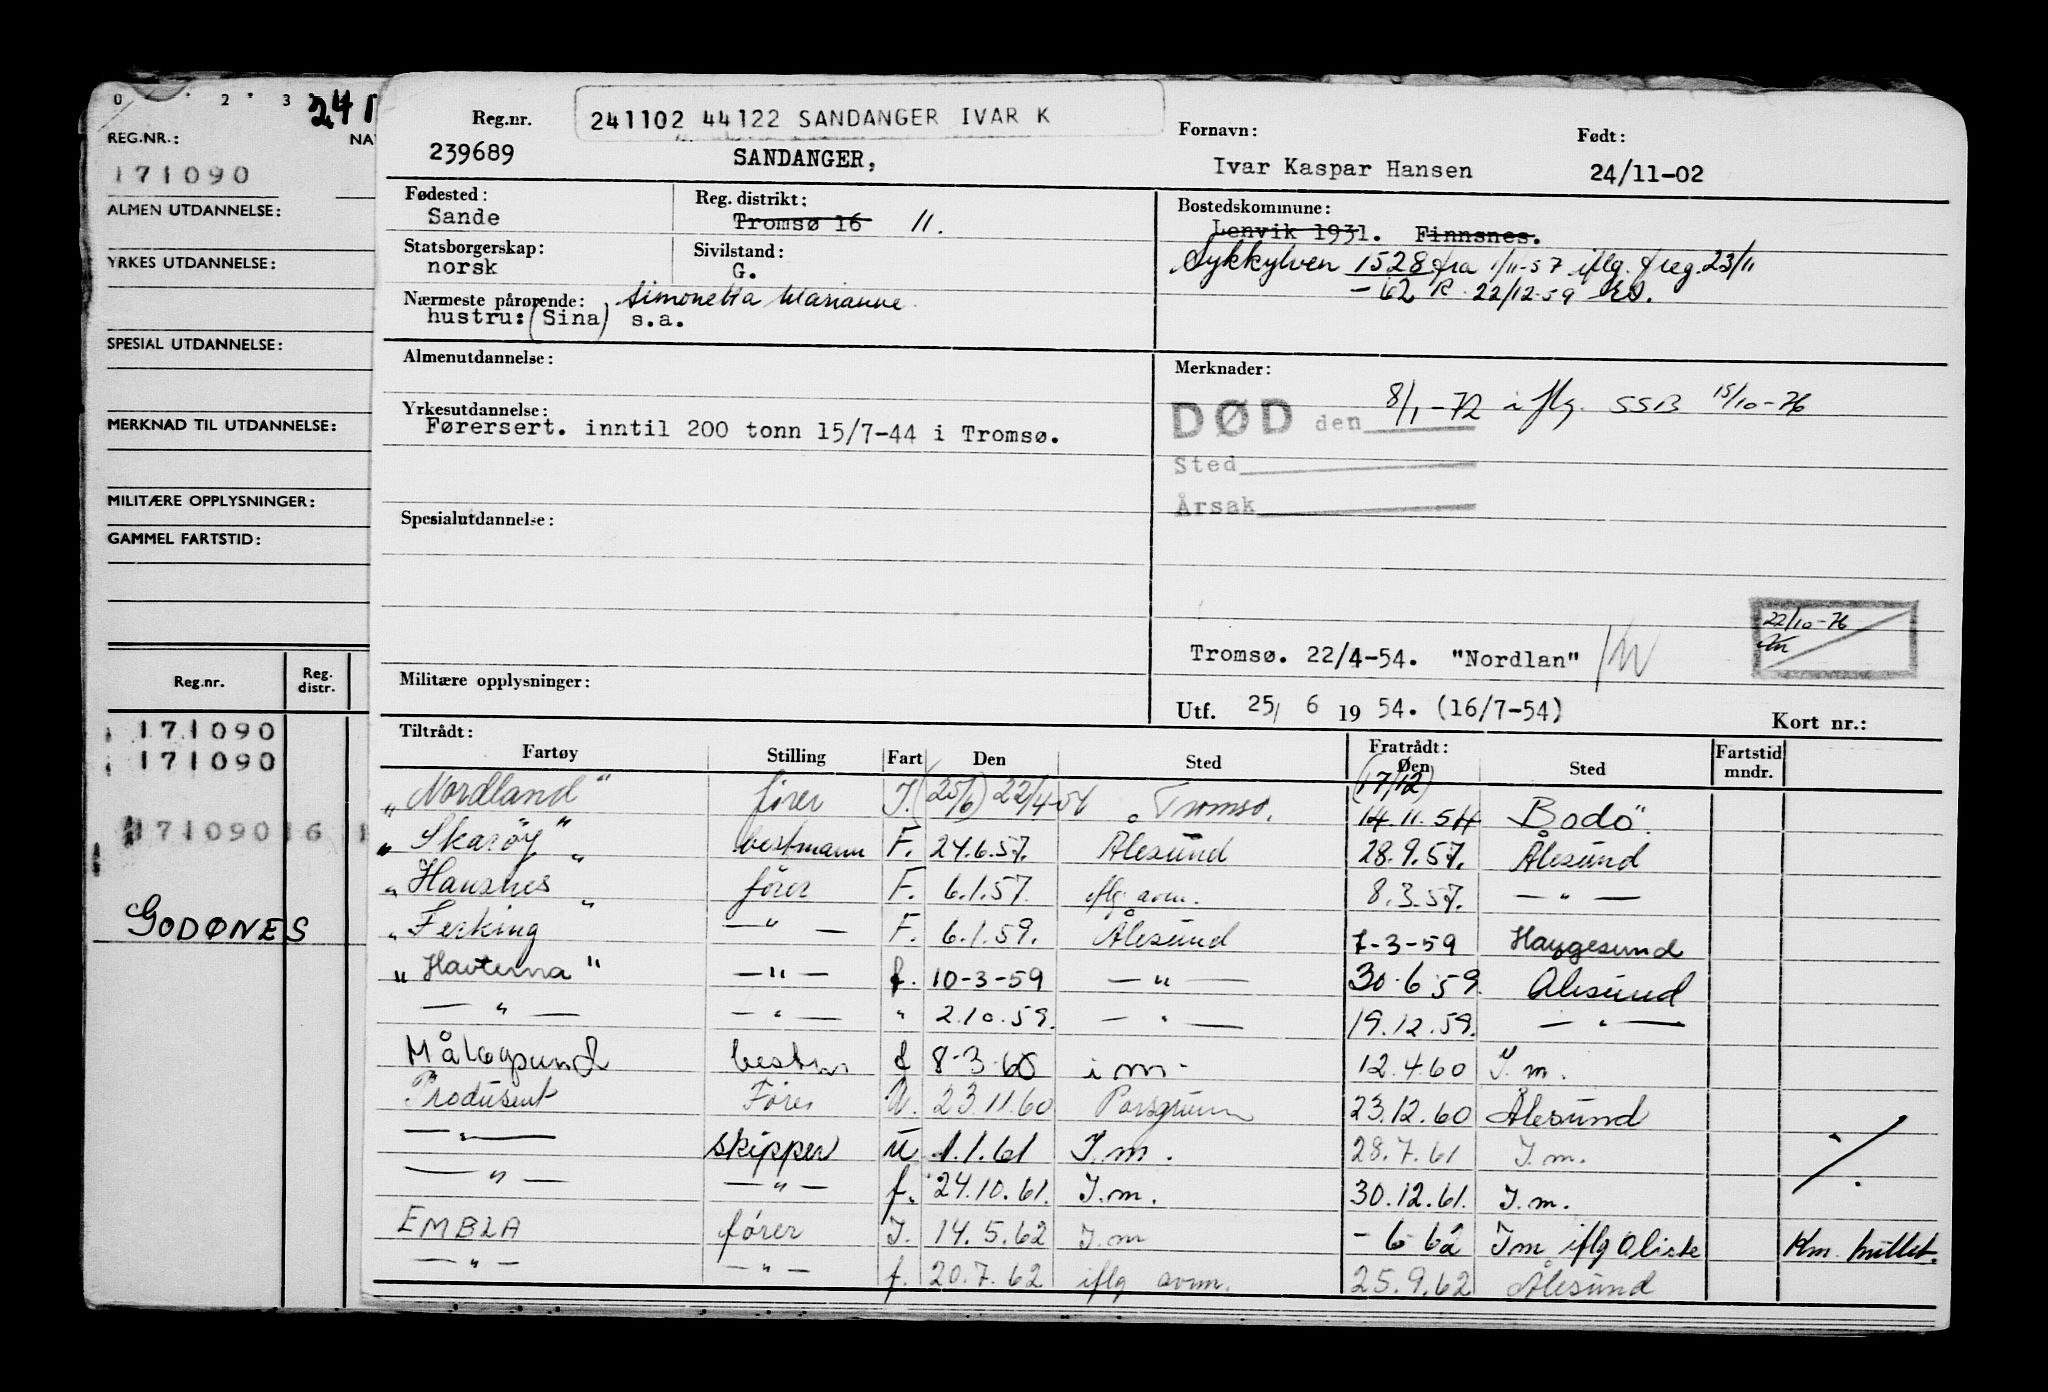 0 2 3
241
REG.NR.: NA
171090
ALMEN UTDANNELSE:
YRKES UTDANNELSE:
SPESIAL UTDANNELSE:
MERKNAD TIL UTDANNELSE:
MILITÆRE OPPLYSNINGER:
GAMMEL FARTSTID:
Reg.nr. Reg. distr.
171090
171090
171090 16 1
GODØNES
Reg.nr. 241102 44122 SANDANGER IVAR K Fornavn: Født:
239689 SANDANGER, Ivar Kaspar Hansen 24/11-02
Fødested: Reg. distrikt: Bostedskommune:
Sande Tromsø 16 11. Lenvik 1931. Finnsnes.
Statsborgerskap: Sivilstand: Sykkylven 1528 fra 1/11-57 iflg. freg. 23/11
norsk G. -62 R 22/12-59
Nærmeste pårørende: Simonetta Marianne
hustru: (Sina) s.a.
Almenutdannelse: Merknader:
Yrkesutdannelse: DØD den 8/1-72 iflg. SSB 15/10-76
Førersert. inntil 200 tonn 15/7-44 i Tromsø.
Sted
Årsak
Spesialutdannelse:
22/10-76
Tromsø. 22/4-54. "Nordlan"
Militære opplysninger:
Utf. 25/ 6 19 54. (16/7-54) Kort nr.:
Tiltrådt: Fratrådt:
Fartøy Stilling Fart Den Sted Den Sted Fartstid mndr.
"Nordland" fører I. (25/6) 22/4-54 Tromsø. (17/12) 14.11.54 Bodö.
"Skarøy" bestmann F. 24.6.57. Ålesund 28.9.57. Ålesund
"Hausnes" fører F. 6.1.57. iflg avm. 8.3.57. — " —
"Ferking — " — F. 6.1.59. Ålesund 7-3-59 Haugesund
"Havterna" — " — f. 10-3-59 — " — 30.6 59. Ålesund
— " — — " — " 2.10.59. — " — 19.12.59. — " —
Måløysund bestm f 8-3-60 i m. 12.4.60 I.m.
Produsent Fører U. 23.11.60 Porsgrunn 23.12.60 Ålesund
— " — skipper u 1.1.61 I.m. 28.7.61 I.m.
— " — — " — f. 24.10.61. I.m. 30.12.61. I.m.
EMBLA fører I. 14.5.62 I.m - 6 62 Im iflg Aliste Km. hullet.
— " — — " — f. 20.7.62 iflg avm. 25.9.62 Ålesund